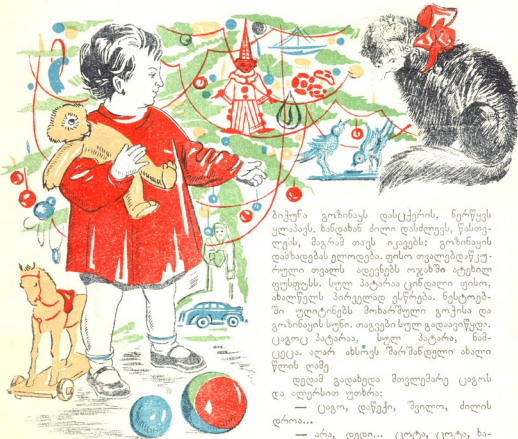 ბიჭუნა გოზინაყს დასცქერის, ნერწყვს
ყლაპავს. ხანდახან ძილი დასძლევს, წასთვ-
ლემს, მაგრამ თავს იკავებს: გოზინაყის
დამზადებას ელოდება. ფისო თვალებდაჭყე-
ტილი თვალს ადევნებს ოჯახში ატეხილ
ფუსფუსს. სულ პატარაა ცინდალი ფისო,
ახალწელს პირველად ესწრება. ნესტოებ-
ში უღიტინებს მოხარშული გოჭისა და
გოზინაყის სუნი. თაგვები სულ გადაავიწყდა.
ცაგოც პატარაა, სულ პატარა, ნამ-
ცეცა. აღარ ახსოვს შარშანდელი ახალი
წლის ღამე.
დედამ გადახედა მთვლემარე ცაგოს
და ალერსით უთხრა:
— ცაგო, დაწექი, შვილო, ძილის
დროა...
— არა, დედი... ცოტა, ცოტა, ხა-